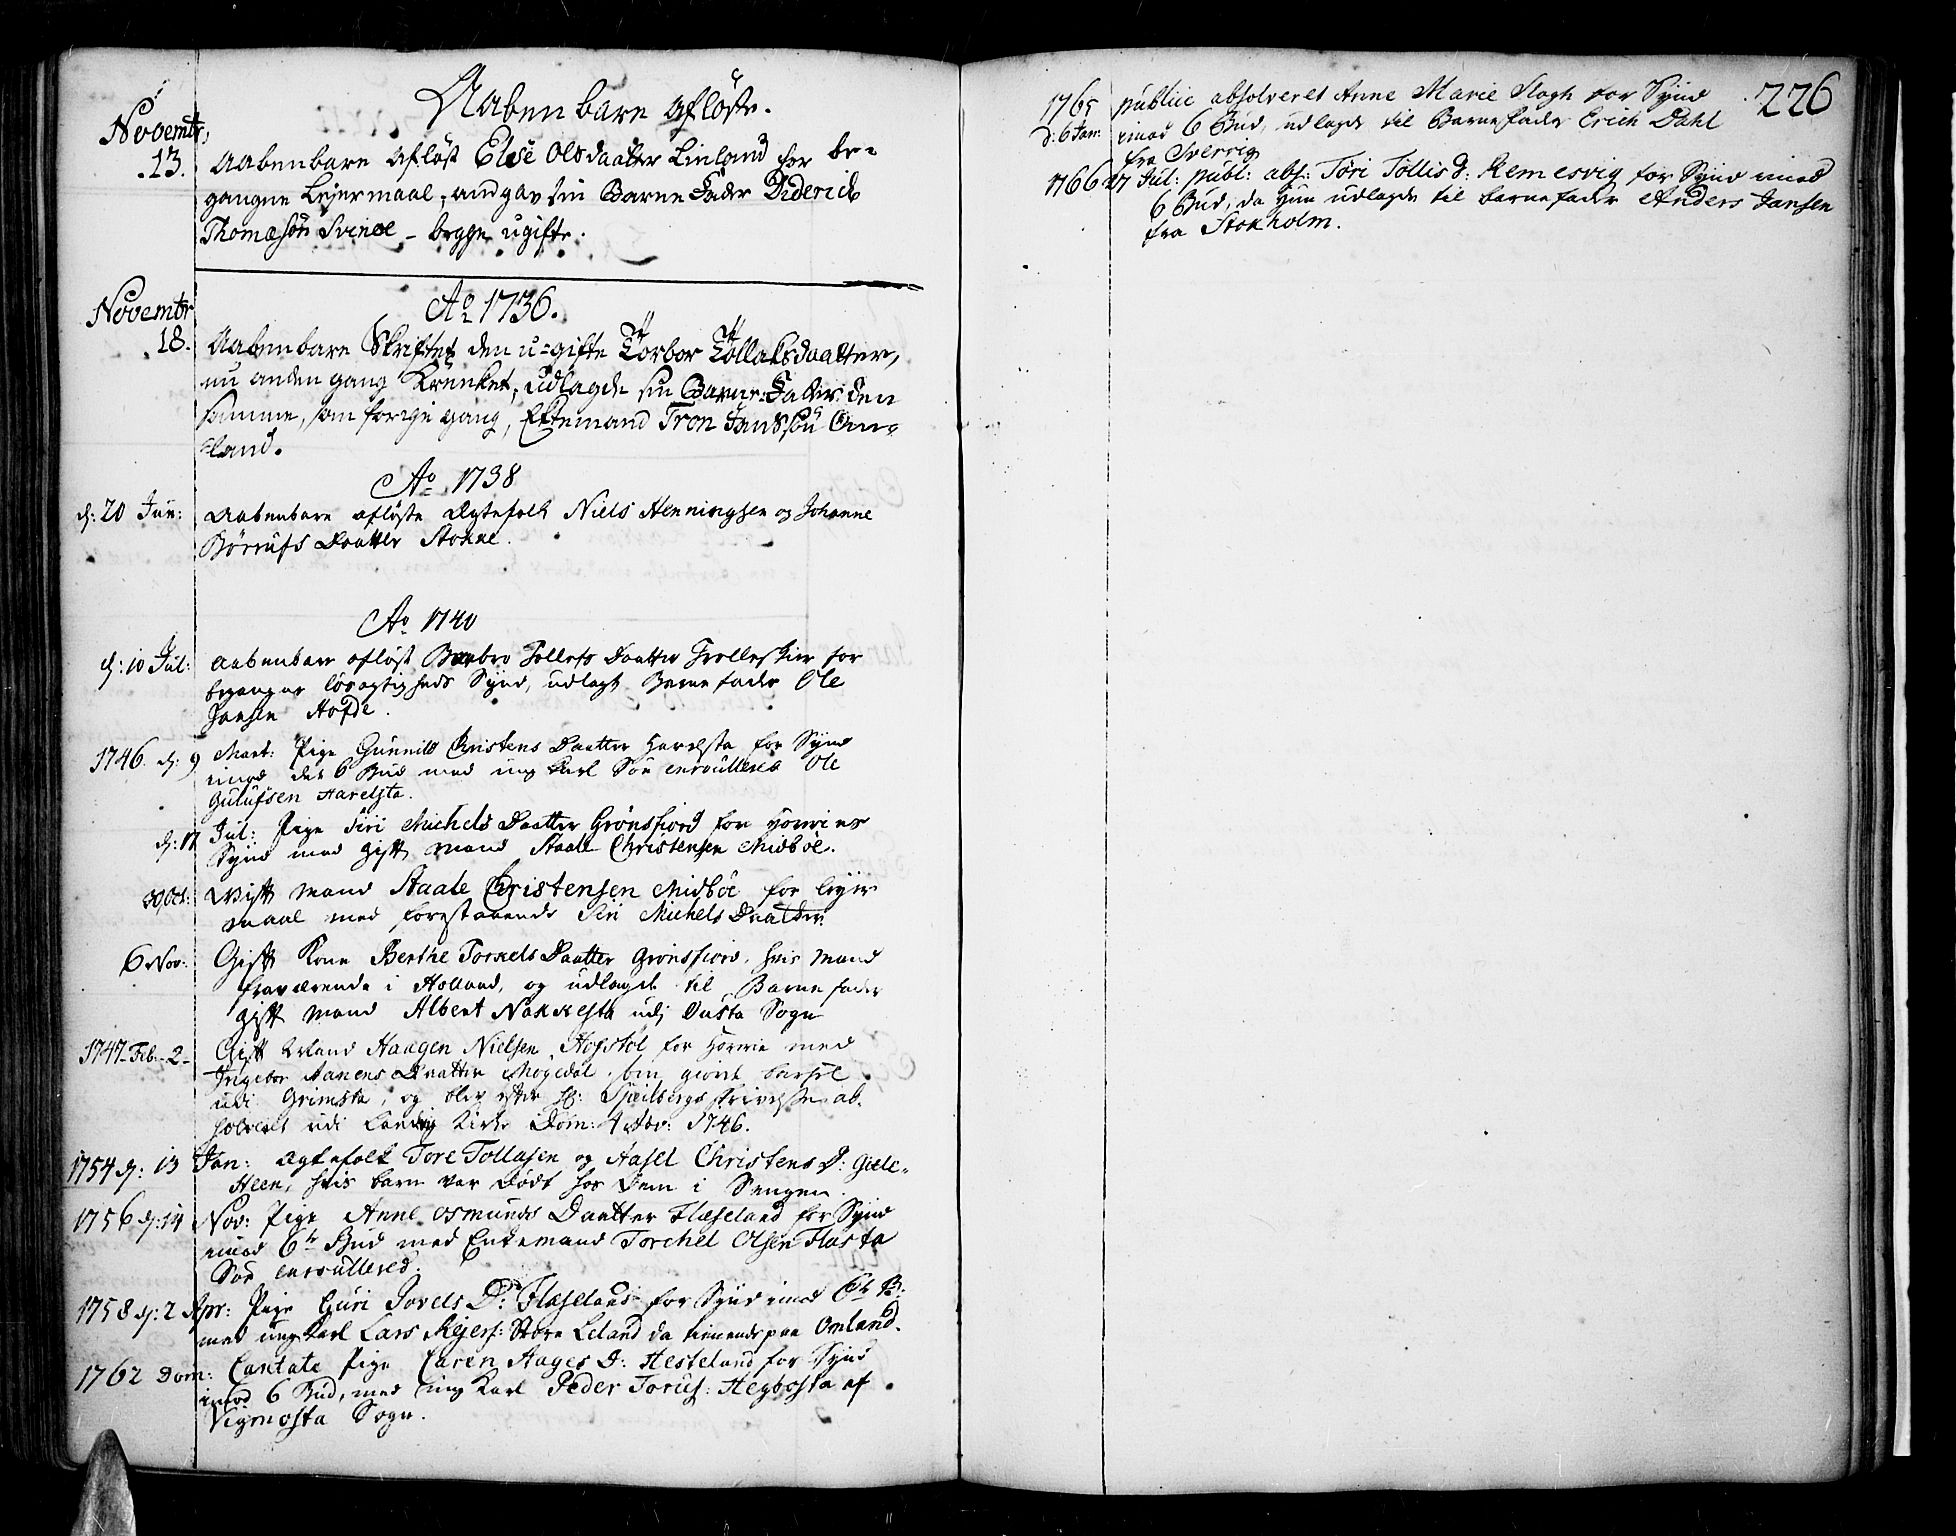 Aabenbare afløste.
Novembr:
13. Aabenbare afløst Else Olsdaatter Linland for be-
gangne Lejermaal, andgav sin Barne Fader Diderich
Thomæsøn Svinøe - begge ugifte.
Ao 1736.
Novembr
18. Aabenbare Skriftet den u-gifte Torbor Tollaksdaatter,
nu anden gang Krenket, udlagde sin Barne-Fader den
samme, som forrige gang, Ektemand Tron Jensøn Om-
land.
Ao 1738
d: 20 Jun: Aabenbare afløste Ægtefolk Niels Henningsen og Johanne
Børrufs Daatter Stokke.
Ao 1740
d: 10 Jul: aabenbare afløst Barbro Tollefs Daatter Trolleskier for
begangne løsagtigheds Synd, udlagt Barnefader Ole
Jansen Hofde.
1746 d: 9 Mart: Pige Gunnild Christens Daatter Harelsta for Synd
imod det 6 Bud med ung Karl Søe enroulleret Ole
Gulufsen Harelsta.
d: 17 Jul: Pige Siri Michels Daatter Grønsfiord for horries
Synd med gift Mand Staale Christensen Midbøe.
30 Oct: Gift Mand Staale Christensen Midbøe for leyer
maal med forestaaende Siri Michels Daatter.
6 Nov: Gift Kone Berthe Torkels Daatter Grønsfiord, hvis Mand
fraværende i Holland, og udlagde til Barnefader
gift Mand Albert Nakkesta udj Susta Sogn
1747 Feb. 2 Gift Mand Haagen Nielsen Hofstøl for Horrie med
Ingebor Aanens Daatter Mogedal, som giorde barsel
udi Grimsta, og blev efter Hr: Speilbergs skrivelse ab-
solveret udi Landvig Kirke Dom: 4 Adv: 1746.
1754 d: 13 Jan: Ægtefolk Tore Tollasen og Aasel Christens D: Giele-
Heen, hvis barn var Dødt hos Dem i Sengen.
1756 d: 14 Nov: Pige Anne Osmunds Daatter Flæseland for Synd
imod 6te Bud med Enkemand Torchel Olsen Flusta
Søe enroullered.
1758 d: 2 Apr: Pige Guri Jovels D: Flaseland for Synd imod 6te B:
med ung Karl Lars Reiers: Store Leland da tienende paa Omland.
1762 Dom: Cantate Pige Caren Aages D: Hesteland for Synd
imod 6 Bud, med ung Karl Peder Torus: Hegbosta af
Vigmosta Sogn.
226
1765
d: 6 Jan: publice absolveret Anne Marie Slogh for Synd
imod 6 Bud, udlagde til Barnefader Erich Dahl
fra Sverrig
1766 27 Jul: publ: abs: Tøri Tollis D: Remesvig for Synd imod
6 Bud, da hun udlagde til barnefader Anders Jansen
fra Stokholm.